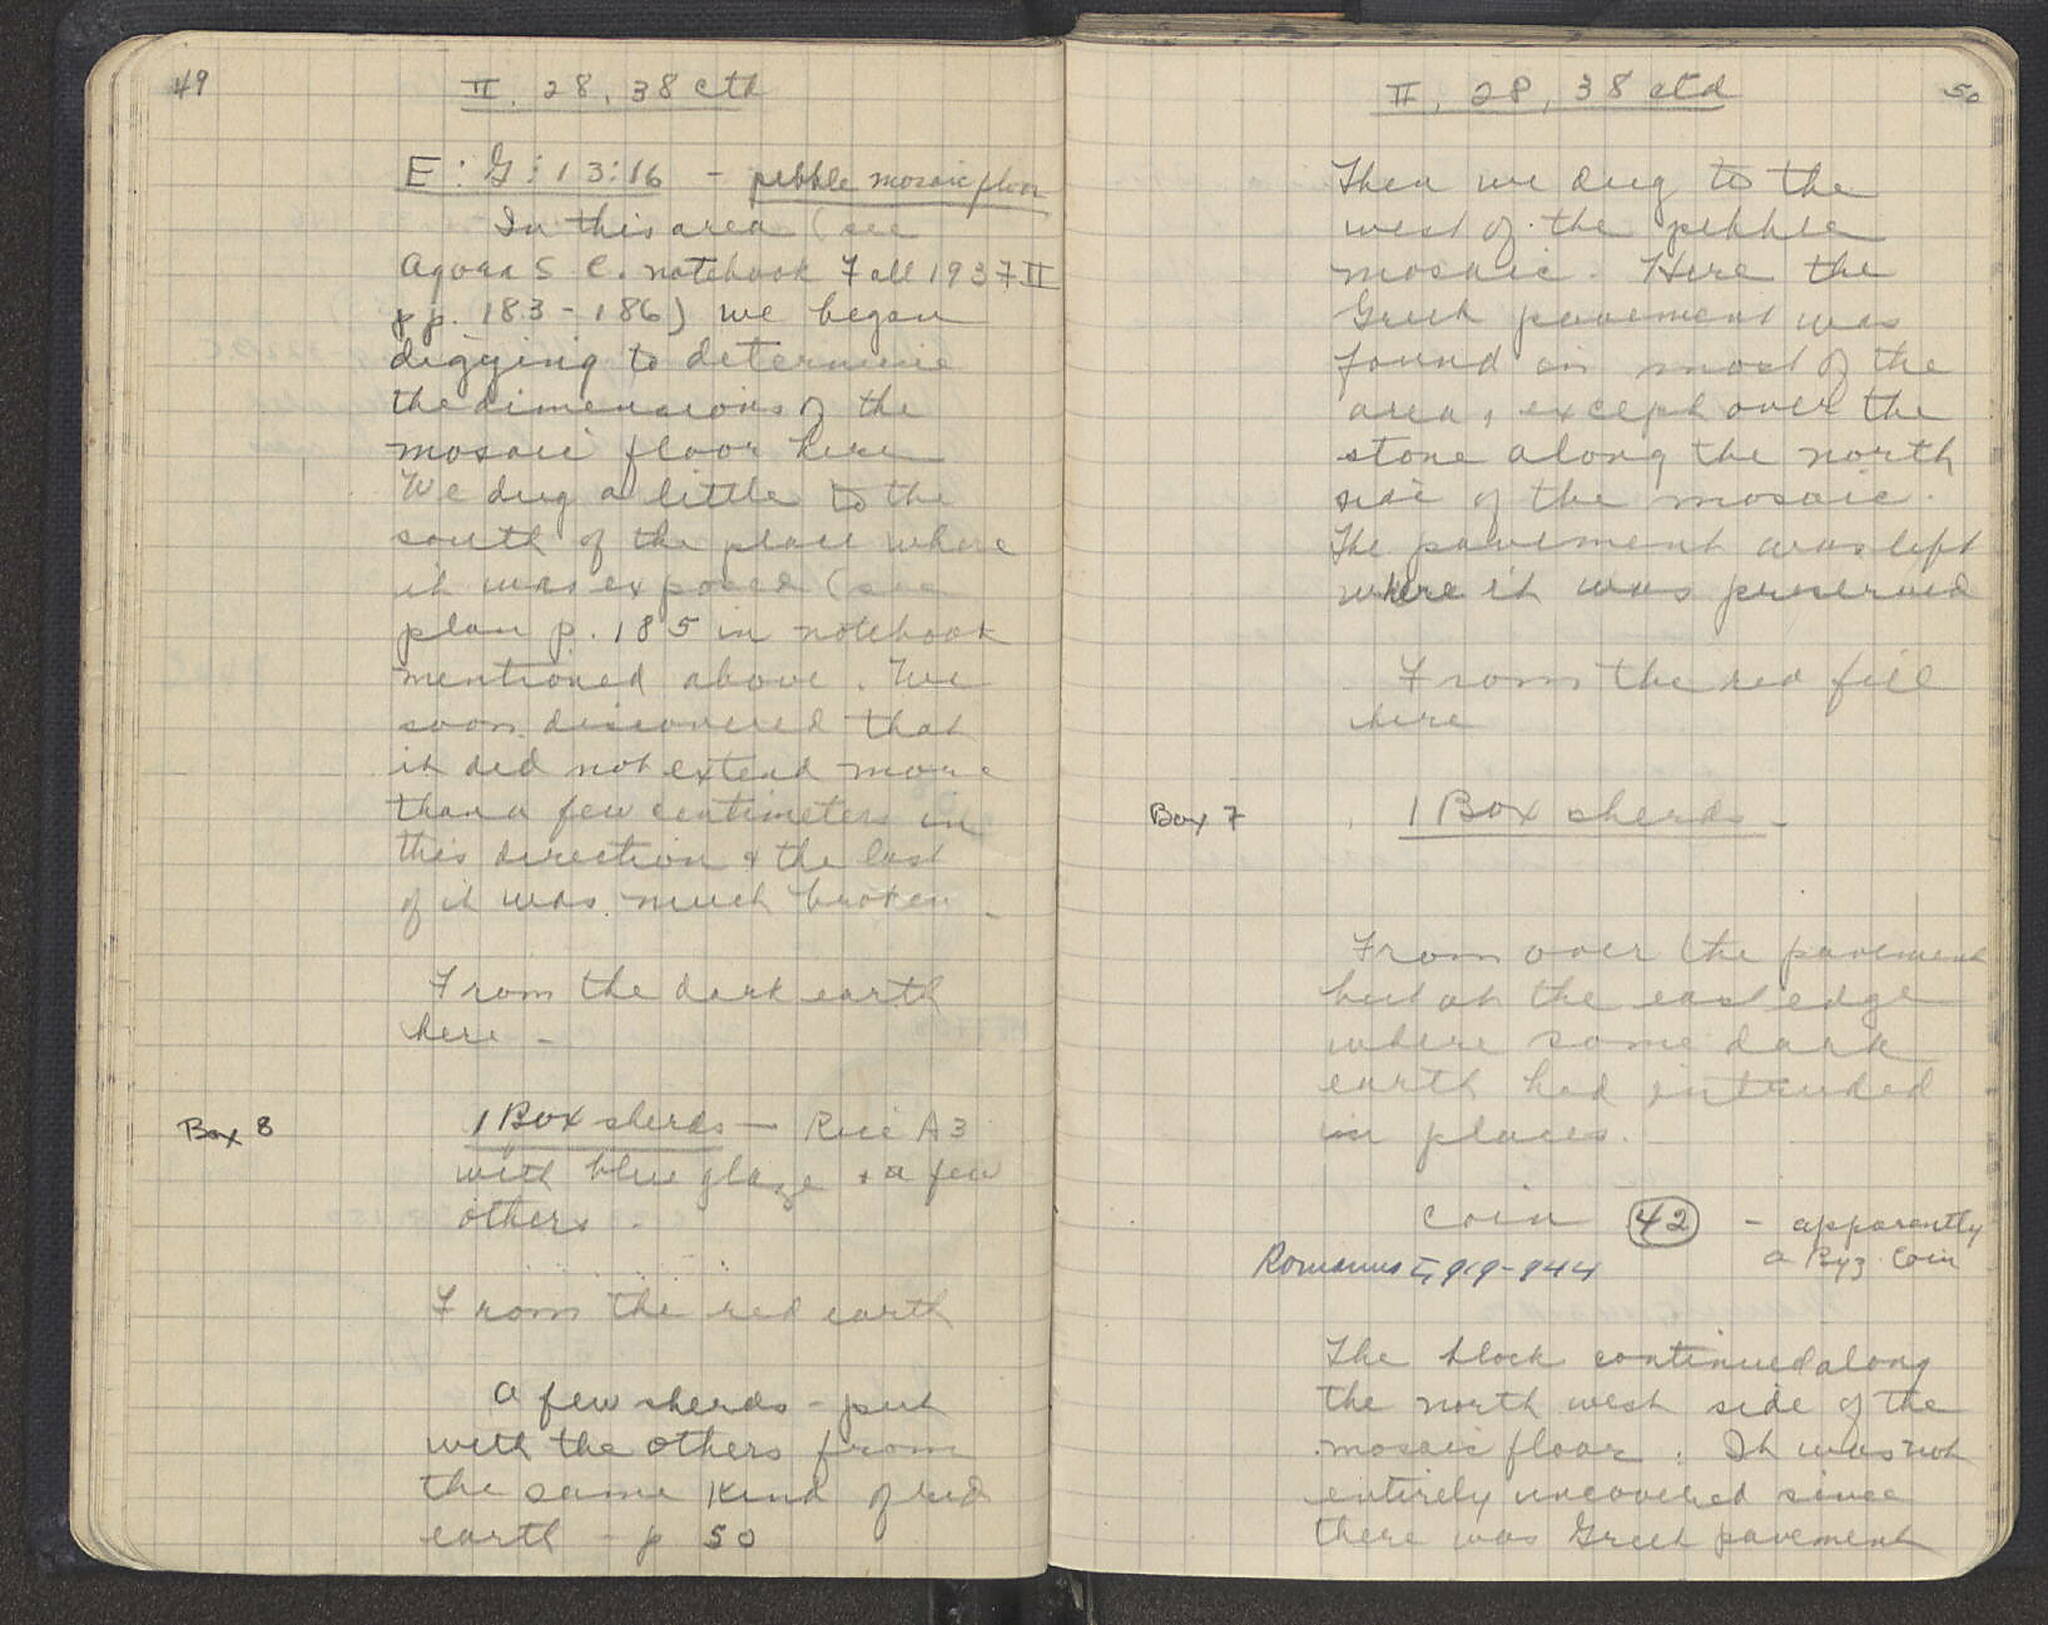 49
II. 28, 38 ctd
E:G:13:16 - pebble mosaic floor
In this area (see
Agora S C. notebook Fall 1937 II
pp. 183-186) we began
digging to determine
the dimensions of the
mosaic floor here
We dug a little to the
south of the place where
it was exposed (see
plan p. 185 in notebook
mentioned above. We
soon discovered that
it did not extend more
than a few centimeters in
this direction & the last
of it was much broken -
From the dark earth
here -
Box 8
1 Box sherds - Rice A3
with blue glaze + a few
others.
From the red earth
A few sherds - put
with the others from
the same kind of red
earth - p 50
II, 28, 38 ctd
50
Then we dug to the
west of the pebble
mosaic. Here the
Greek pavement was
found in most of the
area, except over the
stone along the north
side of the mosaic.
The pavement was left
where it was preserved
From the red fill
here
Box 7
1 Box sherds -
From over the pavement
but at the east edge
where some dark
earth had intruded
in places.
coin 42 - apparently
a Byz. Coin
Romanus I, 919-944
The block continued along
the north west side of the
mosaic floor. It was not
entirely uncovered since
there was Greek pavement